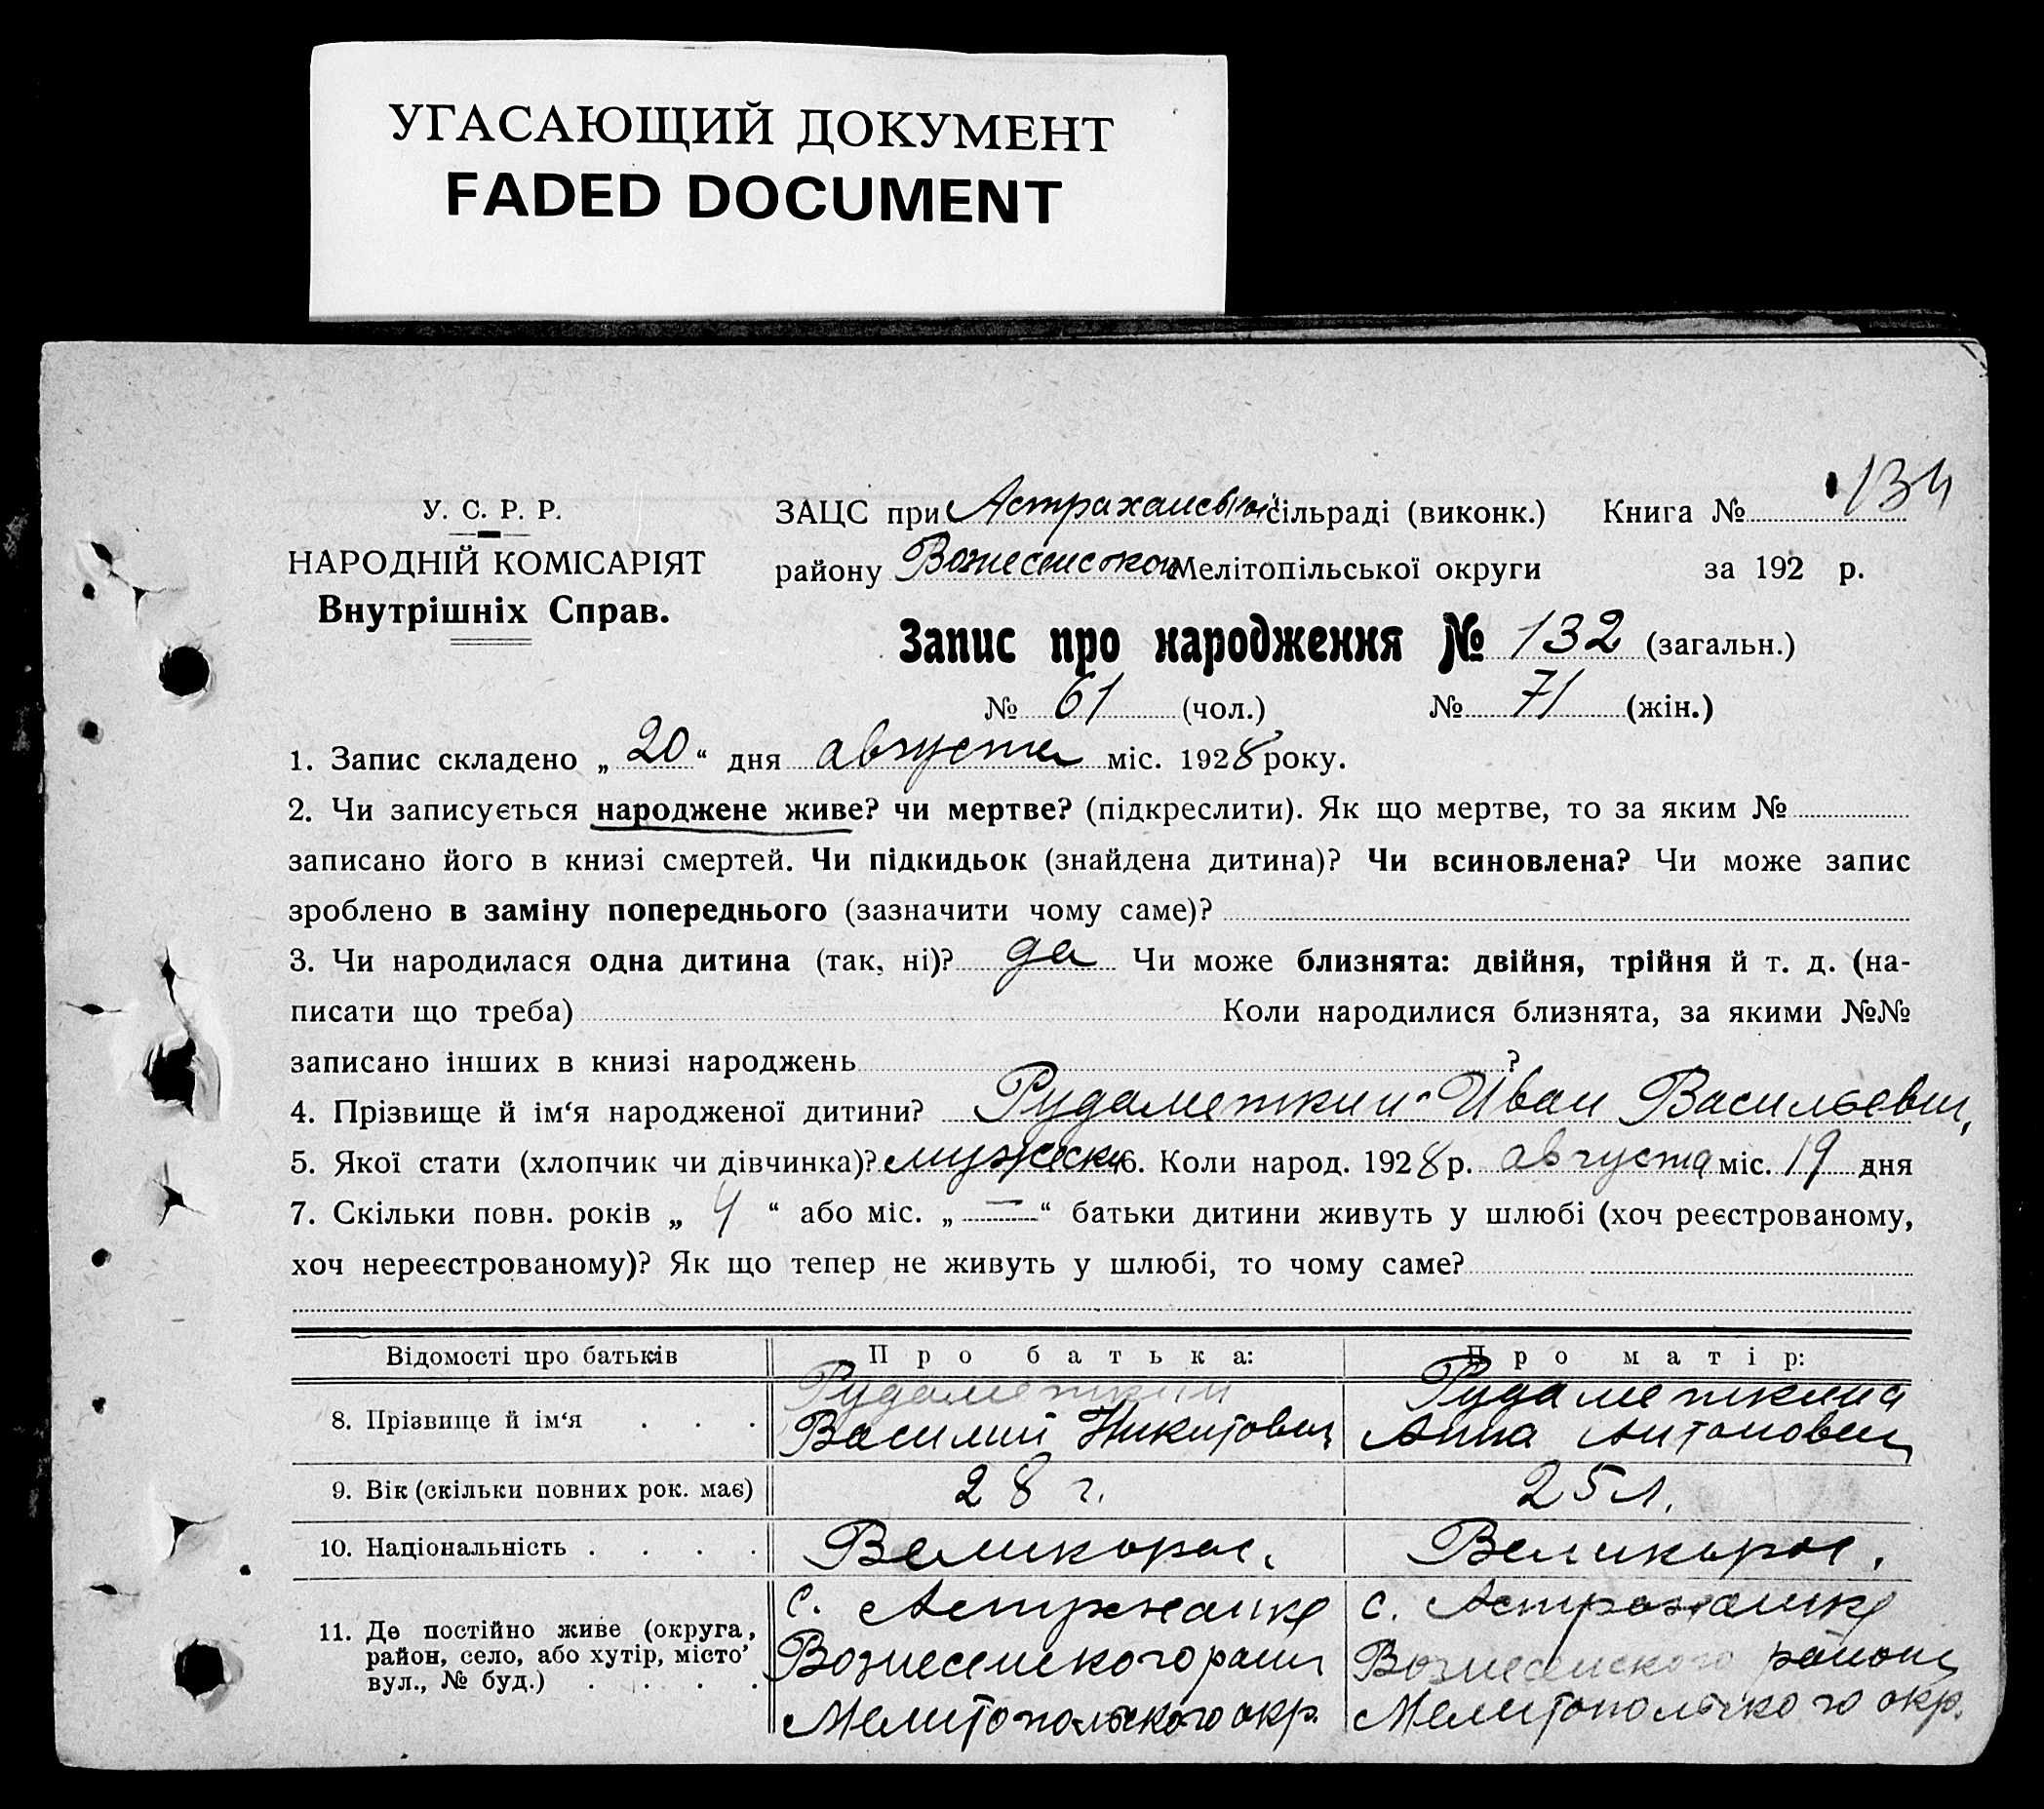 УГАСАЮЩИЙ ДОКУМЕНТ
FADED DOCUMENT
134
У. С. Р. Р.
НАРОДНІЙ КОМІСАРІЯТ
Внутрішніх Справ.
ЗАЦС при Астраханській сільраді (виконк.) Книга №
району Вознесенском Мелітопільської округи за 192 р.
Запис про народження № 132 (загальн.)
№ 61 (чол.) № 71 (жін.)
1. Запис складено „ 20 “ дня августа міс. 1928 року.
2. Чи записується народжене живе? чи мертве? (підкреслити). Як що мертве, то за яким №
записано його в книзі смертей. Чи підкидьок (знайдена дитина)? Чи всиновлена? Чи може запис
зроблено в заміну попереднього (зазначити чому саме)?
3. Чи народилася одна дитина (так, ні)? да Чи може близнята: двійня, трійня й т. д. (на-
писати що треба) Коли народилися близнята, за якими №№
записано інших в книзі народжень ?
4. Прізвище й ім‘я народженої дитини? Рудаметкин Иван Васильевич
5. Якої стати (хлопчик чи дівчинка)? мужески 6. Коли народ. 1928 р. августа міс. 19 дня
7. Скільки повн. років „ 4 “ або міс. „ — “ батьки дитини живуть у шлюбі (хоч реєстрованому,
хоч нереєстрованому)? Як що тепер не живуть у шлюбі, то чому саме?
Відомості про батьків Про батька: Про матір:
8. Прізвище й ім‘я . . . Рудаметкин Василий Никитович Рудаметкина Анна Антоновна
9. Вік (скільки повних рок. має) 28 г. 25 л.
10. Національність . . . . Великорос. Великорос.
11. Де постійно живе (округа, район, село, або хутір, місто, вул., № буд.) . . . .
с. Астраханка с. Астраханка
Вознесенского района Вознесенского района
Мелитопольского окр. Мелитопольского окр.